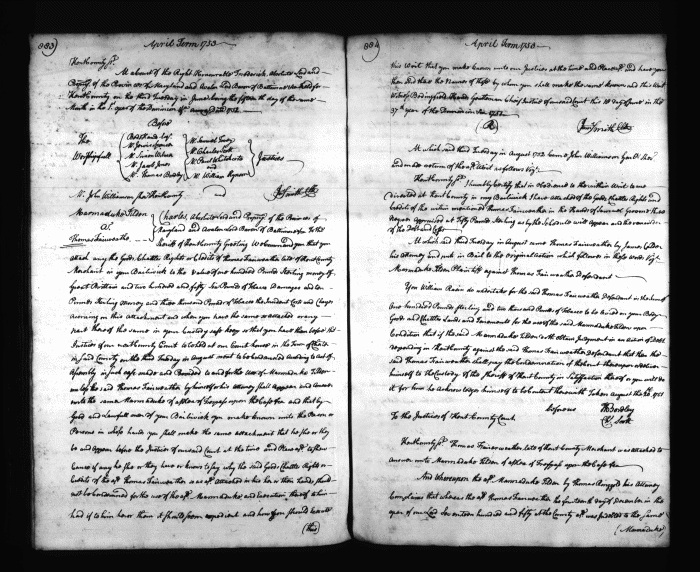 883)
April Term 1753
Kent County Sc.
At a Court of the Right Honourable Frederick Absolute Lord and
Propry of the Province of Maryland and Avalon Lord Baron of Baltimore held for
Kent County on the third Tuesday in June being the day of the same
Month in the Year of the Dominion
Before
The Worshipfull
Bedingfield Hands Esqr.
Mr. Jarvis Spencer
Mr. Simon Wilmer
Mr. Jacob Jones
Mr. Thomas
Mr. Samuel
Mr. Charles
Mr. Paul Whichcote
and
Mr. William Rogers
Justices
Mr. John Williamson Sher. Kent County
Js. Smith Clk
Marmaduke Tilden
agt.
Thomas Fairweather
Charles Absolute Lord and Propry of the Province of
Maryland and Avalon Lord Baron of Baltimore &c To the
Sheriff of Kent County Greeting We command you that you
attach any the Goods Chattles Rights or Credits of Thomas Fairweather late of Kent County
Merchant in your Bailiwick to the Value of one hundred Pounds Sterling money of
Great Brittain and two hundred and fifty six Pounds of Tobacco Damages and
Pounds Sterling money and three thousand Pounds of Tobacco the hundred Costs and Charges
accruing on this Attachment and when you have the same so attached or any
part thereof the same in your Custody safe keep so that you have them before the
Justices of our County Court to be held at our Court house in the Town of Chester
in said County on the third Tuesday in August next to be condemned according to Act of
Assembly in such case made and Provided to and for the Use of Marmaduke Tilden
unless the said Thomas Fairweather by himself or his attorney shall Appear and answer
unto the same Marmaduke of a Plea of Trespass upon the Case &c and that by
Good and Lawfull men of your Bailiwick you make known unto the Person or
Persons in whose hands you shall make the same attachment that he she or they
be and appear before the Justices of our said Court at the time and Place afd. to shew
Cause if any he she or they have or know to say why the said Goods Chattles Rights or
Credits of the afd. Thomas Fairweather so as afd. attached in his her or their hands should
not be condemned for the use of the afd. Marmaduke and Execution thereof to him
had if to him her or them it should seem expedient and how you should Execute
(this)
884)
April Term 1753
this Writ that you make known unto our Justices at the time and Place afd. and have you
then and there the Names of those by whom you shall make the same known and this Writ
Witness Bedingfield Hands Gentleman Chief Justice of our said Court this day of June in the
37th. year of the Dominion 1752
Js. Smith Clk
At which said third Tuesday in August 1752 Came John Williamson Gen. Sher.
and made return of the afd. Writ as follows Vizt.
Kent County Sc. I humbly Certify that in Obedience to the within Writ to me
directed at Kent County in my Bailiwick I have attached of the Goods Chattles Rights and
Credits of the within mentioned Thomas Fairweather in the Hands of Samuel
appraised at fifty Pounds Sterling as by the Schedule will appear and the remainder
of the Debt and Costs
At which said third Tuesday in August came Thomas Fairweather by James Calder
his Attorney and puts in Bail to the original action which follows in these words Vizt.
Marmaduke Tilden Plaintiff against Thomas Fairweather Defendant
You William Rasin do undertake for the said Thomas Fairweather Defendant in the Sum of
one hundred Pounds Sterling and two thousand Pounds of Tobacco to be levied on your Body
Goods and Chattles Lands and Tenements for the use of the said Marmaduke Tilden upon
Condition that if the said Marmaduke Tilden doth obtain Judgment in an action of Debt
depending in Kent County against the said Thomas Fairweather Defendant that then the
said Thomas Fairweather shall pay the Condemnation of the Court thereupon or deliver
himself to the Custody of the Sheriff of Kent County in Satisfaction thereof or you will do
it for him he acknowledges himself to be content therewith Taken August the 20th. 1751
before us
To the Justices of Kent County Court
Kent County Sc. Thomas Fairweather late of Kent County Merchant was attached to
answer unto Marmaduke Tilden of a Plea of Trespass upon the Case &c
And Whereupon the afd. Marmaduke Tilden by Thomas Ringgold his attorney
Complains that whereas the afd. Thomas Fairweather the fourteenth day of December in the
year of our Lord Seventeen hundred and fifty at the County afd. was indebted to the same
(Marmaduke)